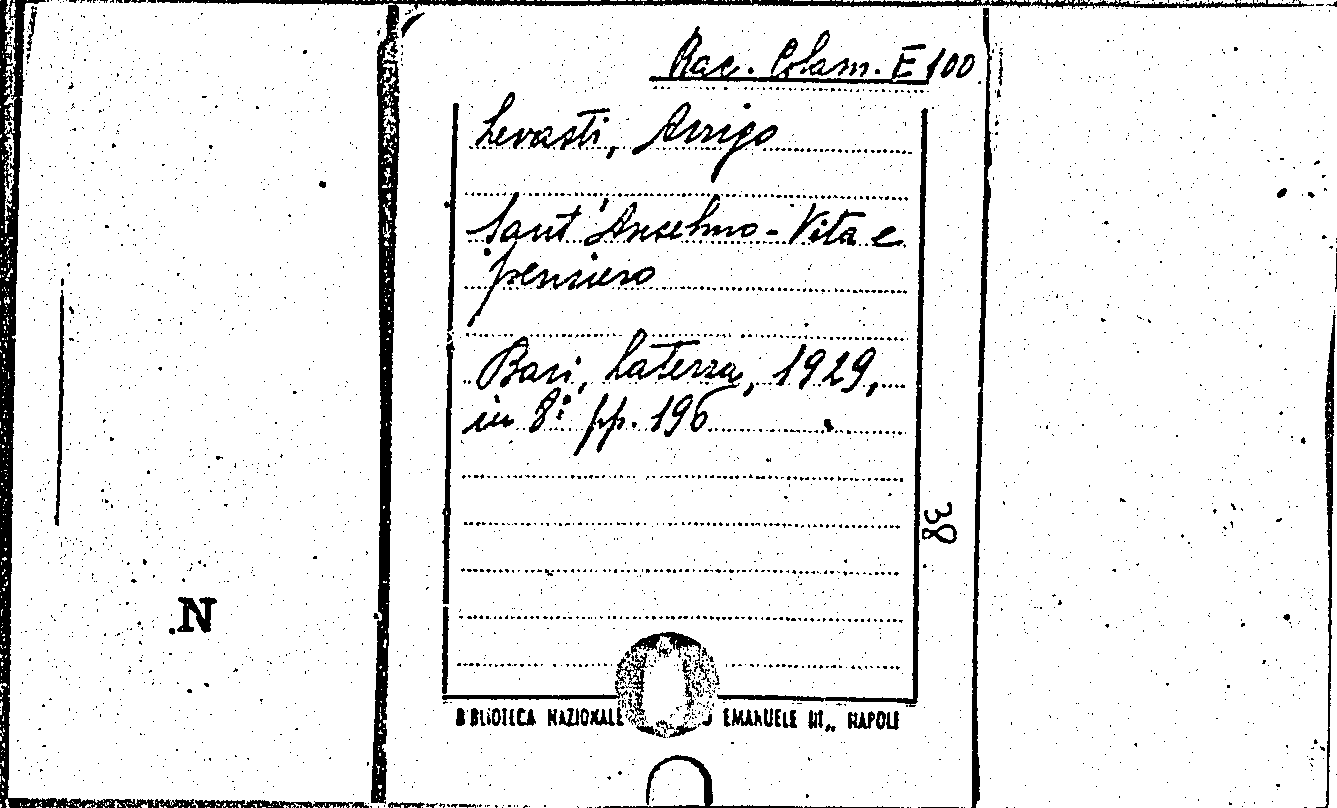 Rac. Colam. E 100
Levasti, Arrigo
Sant'Anselmo - Vita e
pensiero
Bari, Laterza, 1929,
in 8° pp. 196
38
N
BIBLIOTECA NAZIONALE EMANUELE III„ NAPOLI